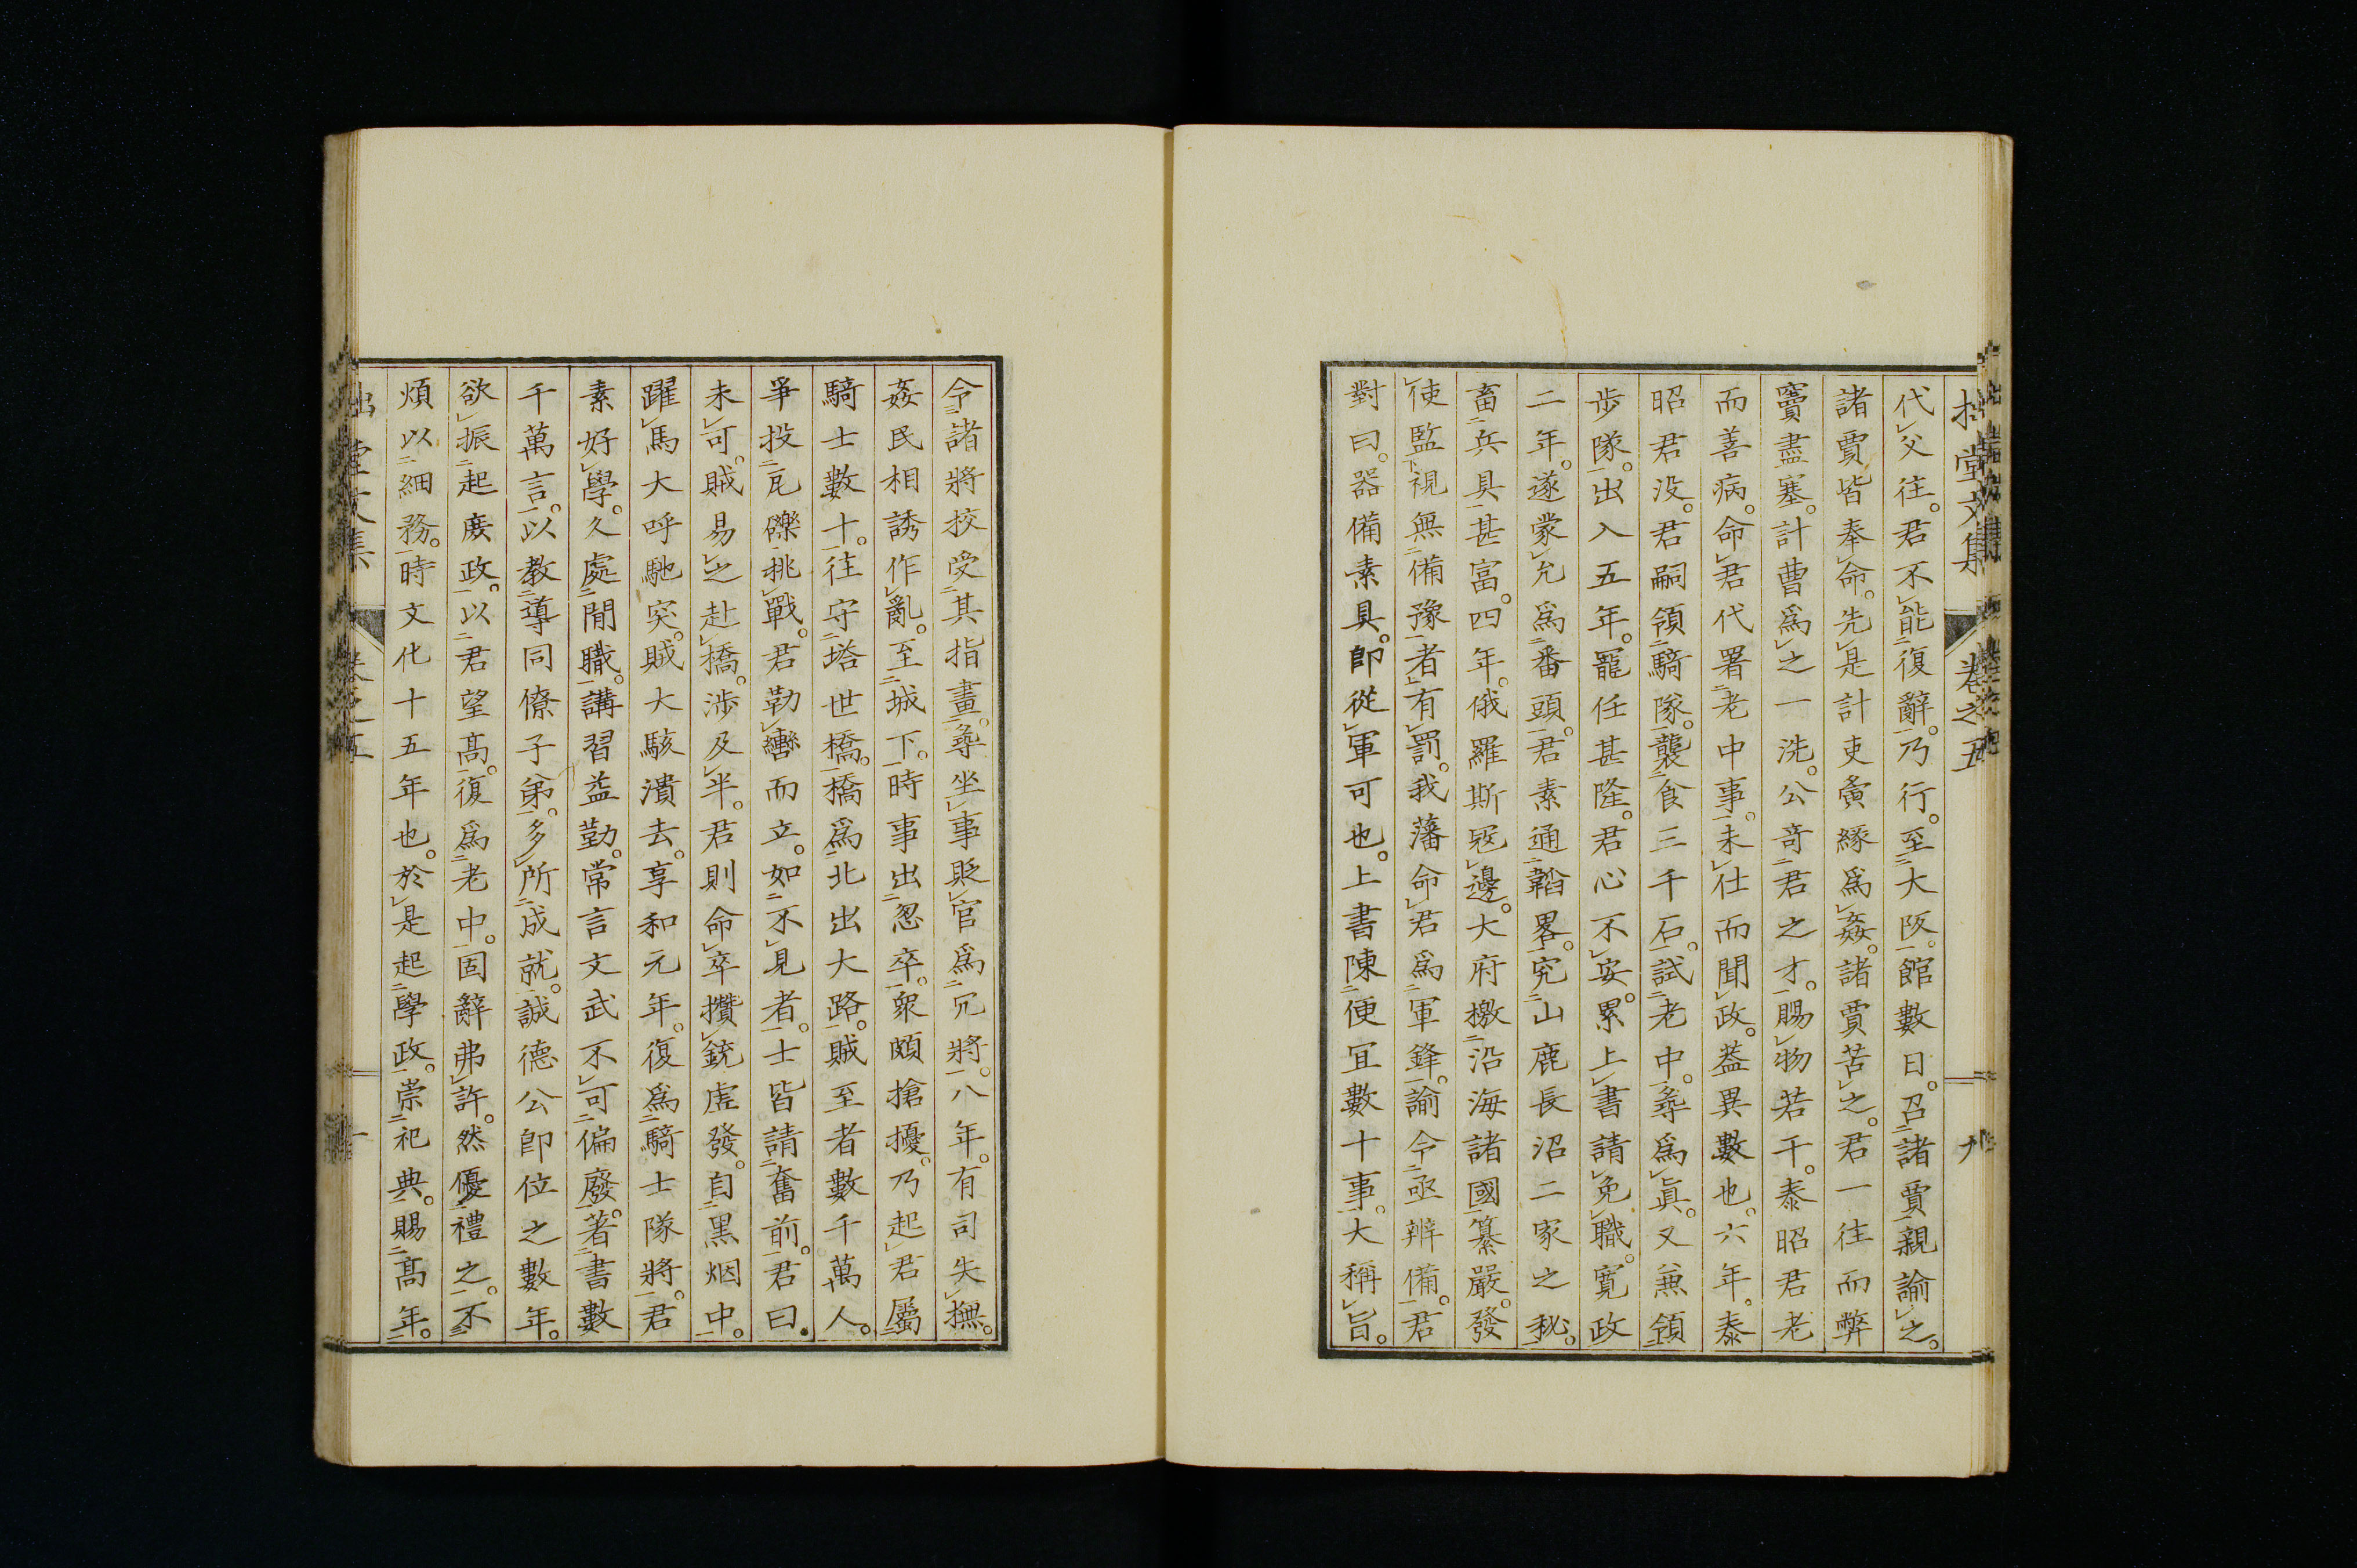 拙堂文集 卷之五 九
代父往。君不能復辭。乃行。至大阪。館數日。召諸賈親諭之。
諸賈皆奉命。先是計吏夤緣爲姦。諸賈苦之。君一往而弊
竇盡塞。計曹爲之一洗。公奇君之才。賜物若干。泰昭君老
而善病。命君代署老中事。未仕而聞政。蓋異數也。六年。泰
昭君没。君嗣領騎隊。襲食三千石。試老中。尋爲眞。又兼領
步隊。出入五年。寵任甚隆。君心不安。累上書請免職。寬政
二年。遂蒙允爲番頭。君素通韜畧。究山鹿長沼二家之秘。
畜兵具甚富。四年。俄羅斯寇邊。大府檄沿海諸國纂嚴。發
使監視無備豫者有罰。我藩命君爲軍鋒。諭令亟辨備。君
對曰。器備素具。卽從軍可也。上書陳便宜數十事。大稱旨。
令諸將挍受其指畫。尋坐事貶官爲冗將。八年。有司失撫。
姦民相誘作亂。至城下。時事出忽卒。衆頗搶擾。乃起君屬
騎士數十。往守塔世橋。橋爲北出大路。賊至者數千萬人。
爭投瓦礫挑戰。君勒轡而立。如不見者。士皆請奮前。君曰。
未可。賊易之赴橋。涉及半。君則命卒攢銃虛發。自黒烟中。
躍馬大呼馳突。賊大駭潰去。享和元年。復爲騎士隊將。君
素好學。久處閒職。講習益勤。常言文武不可偏廢。著書數
千萬言。以教導同僚子弟。多所成就。誠德公卽位之數年。
欲振起庶政。以君望高。復爲老中。固辭弗許。然優禮之。不
煩以細務。時文化十五年也。於是起學政。崇祀典。賜高年。
堂文集 卷之五